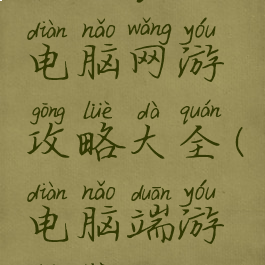 diàn nǎo wǎng yóu
电脑网游
gōng lüè dà quán
攻略大全(
diàn nǎo duān yóu
电脑端游